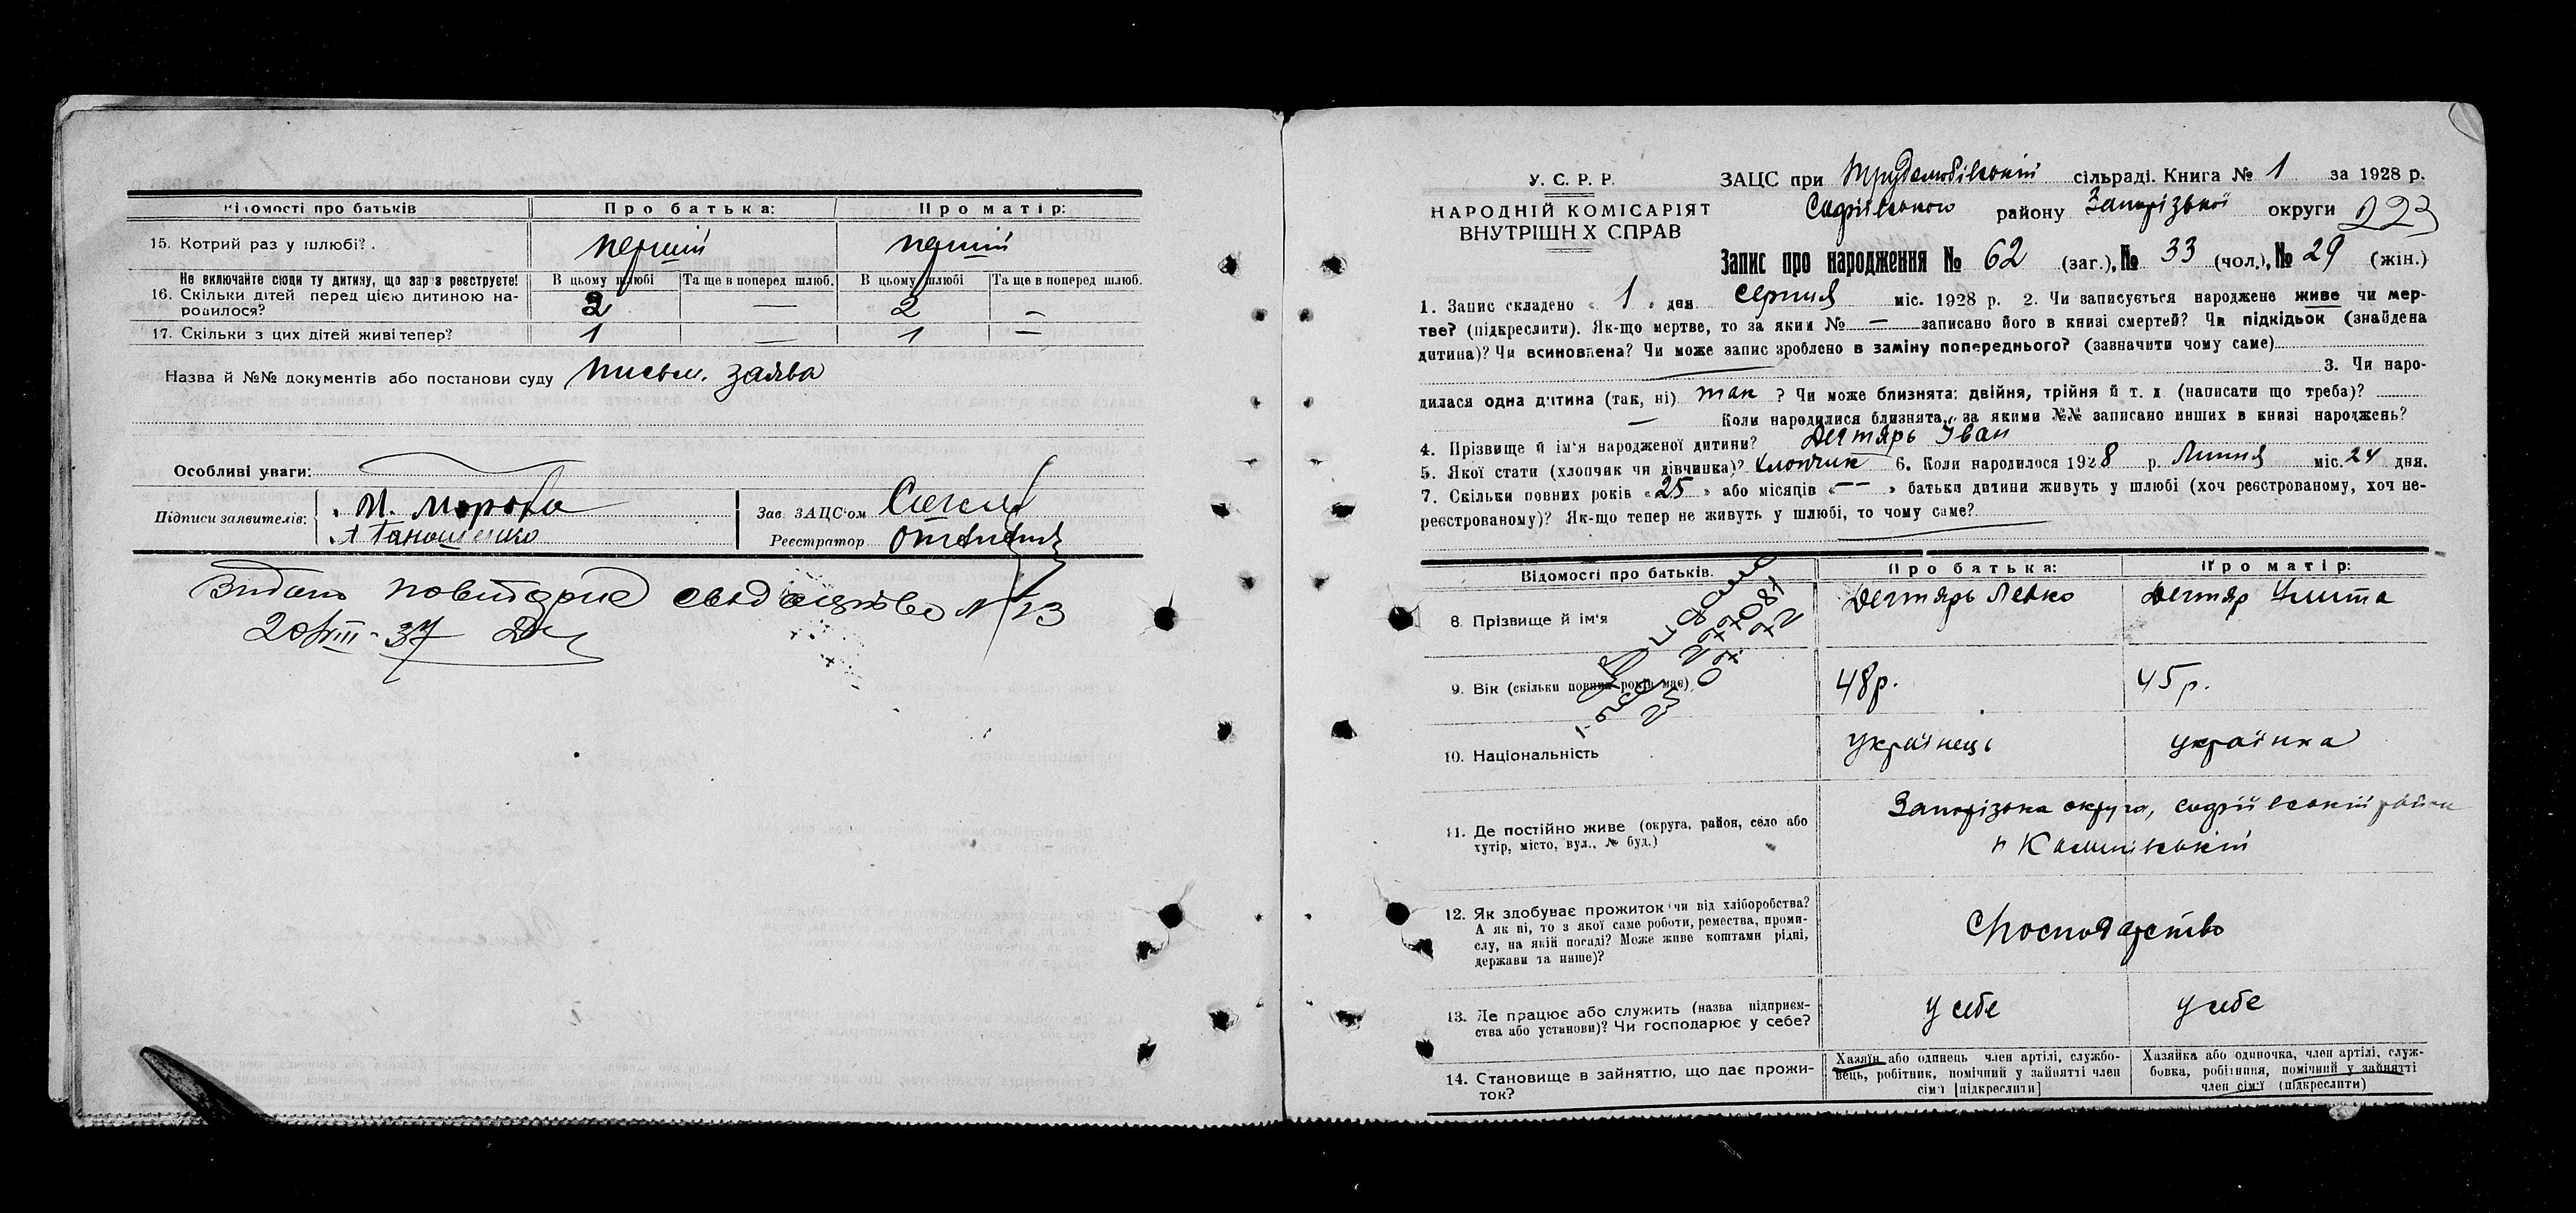 Відомості про батьків
Про батька:
Про матір:
15. Котрий раз у шлюбі?
перший
перший
Не включайте сюди ту дитину, що зараз реєструєте!
16. Скільки дітей перед цією дитиною на-
родилося?
В цьому шлюбі
Та ще в поперед шлюб.
В цьому шлюбі
Та ще в поперед шлюб.
2
—
2
—
17. Скільки з цих дітей живі тепер?
1
—
1
—
Назва й №№ документів або постанови суду письм. заява
Особливі уваги:
Підписи заявителів:
Зав. ЗАЦС'ом
Реєстратор
Видано повиторне свидоцтво № 23
20/VIII-37
У. С. Р. Р.
НАРОДНІЙ КОМІСАРІЯТ
ВНУТРІШН Х СПРАВ
ЗАЦС при Трудолюбівській сільраді. Книга № 1 за 1928 р.
Софіївського району Запорізької округи
223
Запис про народження № 62 (заг.), № 33 (чол.), № 29 (жін.)
1. Запис складено « 1 » дня серпня міс. 1928 р. 2. Чи записується народжене живе чи мер-
тве? (підкреслити). Як-що мертве, то за яким № — записано його в книзі смертей? Чи підкідьок (знайдена
дитина)? Чи всиновлена? Чи може запис зроблено в заміну попереднього? (зазначити чому саме)
3. Чи наро-
дилася одна дитина (так, ні) так ? Чи може близнята: двійня, трійня й т. д (написати що треба)?
— Коли народилися близнята, за якими №№ записано инших в книзі народжень?
4. Прізвище й ім'я народженої дитини? Дегтярь Іван
5. Якої стати (хлопчик чи дівчинка)? хлопчик 6. Коли народилося 1928 р. Липня міс. 24 дня.
7. Скільки повних років « 25 » або місяців « — — » батьки дитини живуть у шлюбі (хоч реєстрованому, хоч не-
реєстрованому)? Як-що тепер не живуть у шлюбі, то чому саме?
Відомості про батьків.
Про батька:
Про матір:
8. Прізвище й ім'я
Дегтярь Левко
Дегтяр Улита
9. Вік (скільки повних років має)
48 р.
45 р.
10. Національність
українець
українка
11. Де постійно живе (округа, район, село або
хутір, місто, вул., № буд.)
Запорізька округа, Софіївський район
12. Як здобуває прожиток чи від хліборобства?
А як ні, то з якої саме роботи, ремества, проми-
слу, на якій посаді? Може живе коштами рідні,
держави та инше)?
Господарство
13. Де працює або служить (назва підприєм-
ства або установи)? Чи господарює у себе?
у себе
у себе
14. Становище в зайняттю, що дає прожи-
ток?
Хазяїн або одинець член артілі, службо-
вець, робітник, помічний у зайнятті член
сім'ї [підкреслити]
Хазяйка або одиночка, член артілі, служ-
бовка, робітниця, помічний у зайнятті
член сім'ї (підкреслити)